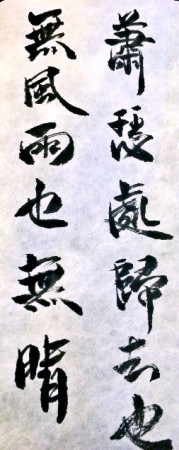 蕭瑟處歸去也
無風雨也無晴